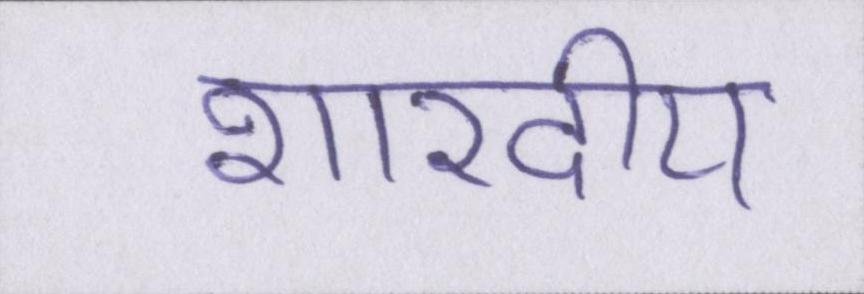 शारदीय